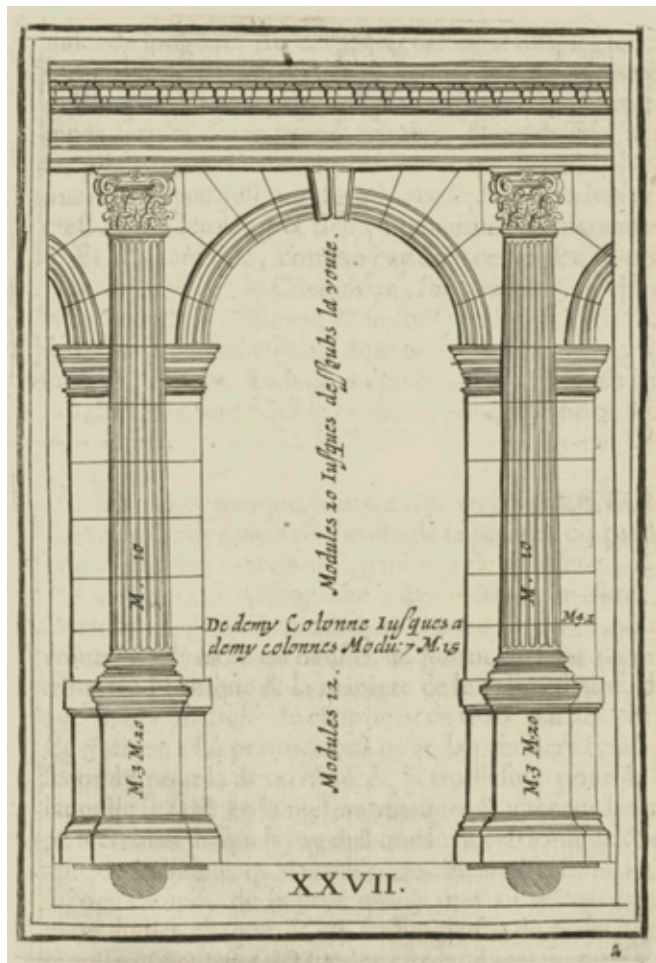 Modules 20 Iuſques deſſoubs la voute.
M. 10
M. 10
De demy Colonne Iuſques a
demy colonnes Modu: 7 M. 15
M 3 M.20
Modules 12.
M.3 M.20
XXVII.